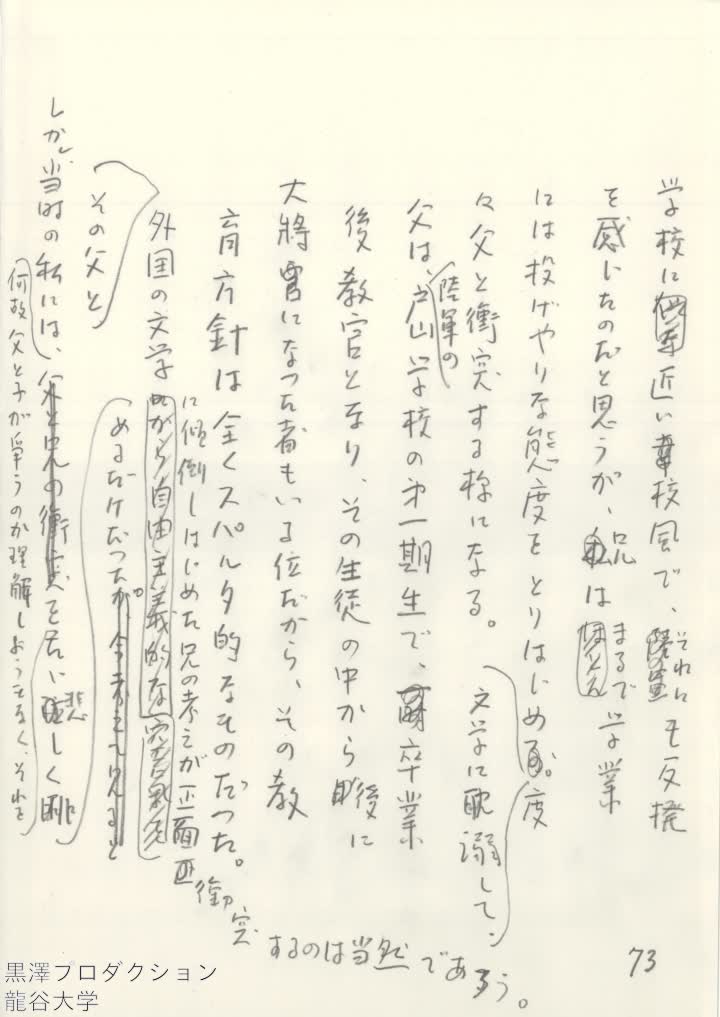 学校に近い校風で、それにも反撥
を感じたのだと思うが、兄はまるで学業
には投げやりな態度をとりはじめ、度
々父と衝突する様になる。文学に耽溺して、
父は、陸軍の戸山学校の第一期生で、卒業
後教官となり、その生徒の中から後に
大將になった者もいる位だから、その教
育方針は全くスパルタ的なものだった。
その父と
外国の文学に傾倒しはじめた兄の考えが正面衝突するのは当然であろう。
めるだけだった。
しかし、当時の私には、
何故父と子が争うのか理解しようもなく、それを
悲しく眺
73
黒澤プロダクション
龍谷大学